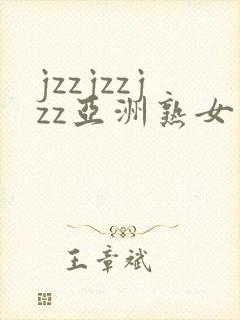 jzzjzzj
zz亞洲熟女
王章斌